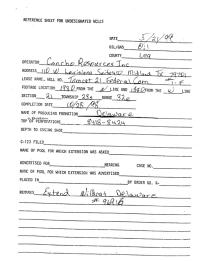 REFERENCE SHEET FOR UNDESIGNATED WELLS
DATE 5/21/99
OIL/GAS Oil
COUNTY Lea
OPERATOR Concho Resources Inc
ADDRESS 110 W Louisiana Midland Tx 79701
LEASE NAME, WELL NO. 21 Federal Com
FOOTAGE LOCATION 1980 FROM THE N LINE AND 1980 FROM THE W LINE
SECTION 21 TOWNSHIP 23s RANGE 32e
COMPLETION DATE 10/28/98
NAME OF PRODUCING FORMATION Delaware
TOP OF PERFORATIONS 8418-8424
DEPTH TO CASING SHOE
C-123 FILED
NAME OF POOL FOR WHICH EXTENSION WAS ASKED
ADVERTISED FOR HEARING CASE NO.
NAME OF POOL FOR WHICH EXTENSION WAS ADVERTISED
PLACED IN BY ORDER NO. R-
REMARKS Extend Delaware